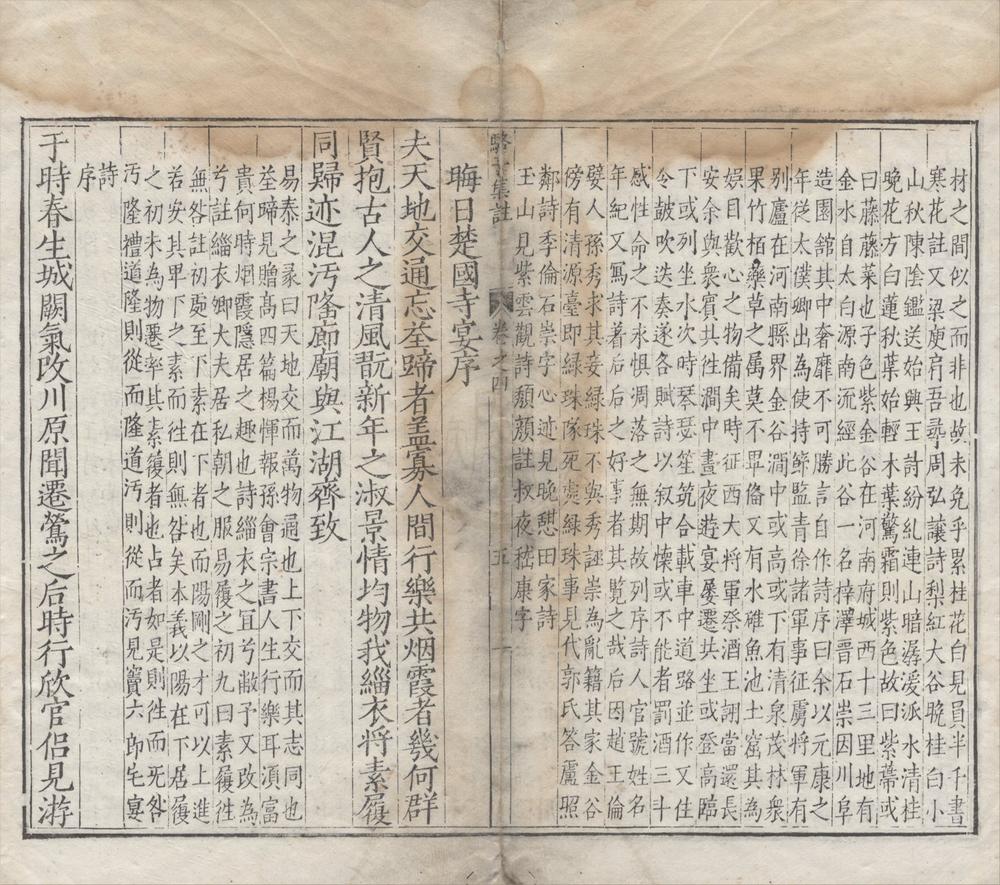 材之間似之而非也故未免乎累桂花白見員半千書
寒花註又梁庾肩吾尋周弘讓詩梨紅大谷晚桂白小
山秋陳陰鑑送始興王詩紛紜連山暗潺湲派水清桂
晚花方白蓮秋葉始輕木葉驚霜則紫色故曰紫幕或
曰藤藤菜也子色紫金谷在河南府城西十三里地有
金水自太白源南流經此谷一名梓澤晋石崇因川阜
造園舘其中奢靡不可勝言自作詩序曰余以元康之
年從太僕卿出為使持節監青徐諸軍事征虜將軍有
別廬在河南縣界金谷澗中或高或下有清泉茂林衆
果竹栢藥草之属莫不畢俻又有水碓魚池土窟其為
娱目歡心之物備矣時征西大将軍祭酒王詡當還長
安余與衆賓共徃澗中晝夜遊宴屢遷共坐或登高蹄
下或列坐水次時琴瑟笙筑合載車中道路並作又住
令皷吹迭奏遂各賦詩以叙中懐或不能者罰酒三斗
感性命之不永惧凋落之無期故列序詩人官號姓名
年紀又冩詩著后后之好事者其覧之哉后因趙王倫
嬖人孫秀求其妾緑珠不與秀誣崇為亂籍其家金谷
傍有清源臺即緑珠墜死處緑珠事見代郭氏答盧照
鄰詩季倫石崇字心迹見晚憇田家詩
玉山見紫雲觀詩頽顏註叔夜嵇康字
駱子集註 卷之四 五
晦日楚國寺宴序
夫天地交通忘筌蹄者盖寡人間行樂共烟霞者幾何群
賢抱古人之清風翫新年之淑景情均物我緇衣将素履
同歸迹混汚隆廊廟與江湖齊致
易泰之彖曰天地交而萬物通也上下交而其志同也
筌蹄見贈髙四篇楊惲報孫會宗書人生行樂耳湏富
貴何時烟霞隱居之趣也詩緇衣之宜兮敝予又改為
兮註緇衣卿大夫居私朝之服易履之初九曰素履徃
無咎註初処至下素在下者也而陽剛之才可以上進
若安其卑下之素而徃則無咎矣本義以陽在下居履
之初未為物遷率其素履者也占者如是則徃而旡咎
汚隆禮道隆則從而隆道汚則從而汚見竇六郎宅宴
詩
序
于時春生城闕氣改川原聞遷鶯之后時行欣官侣見游